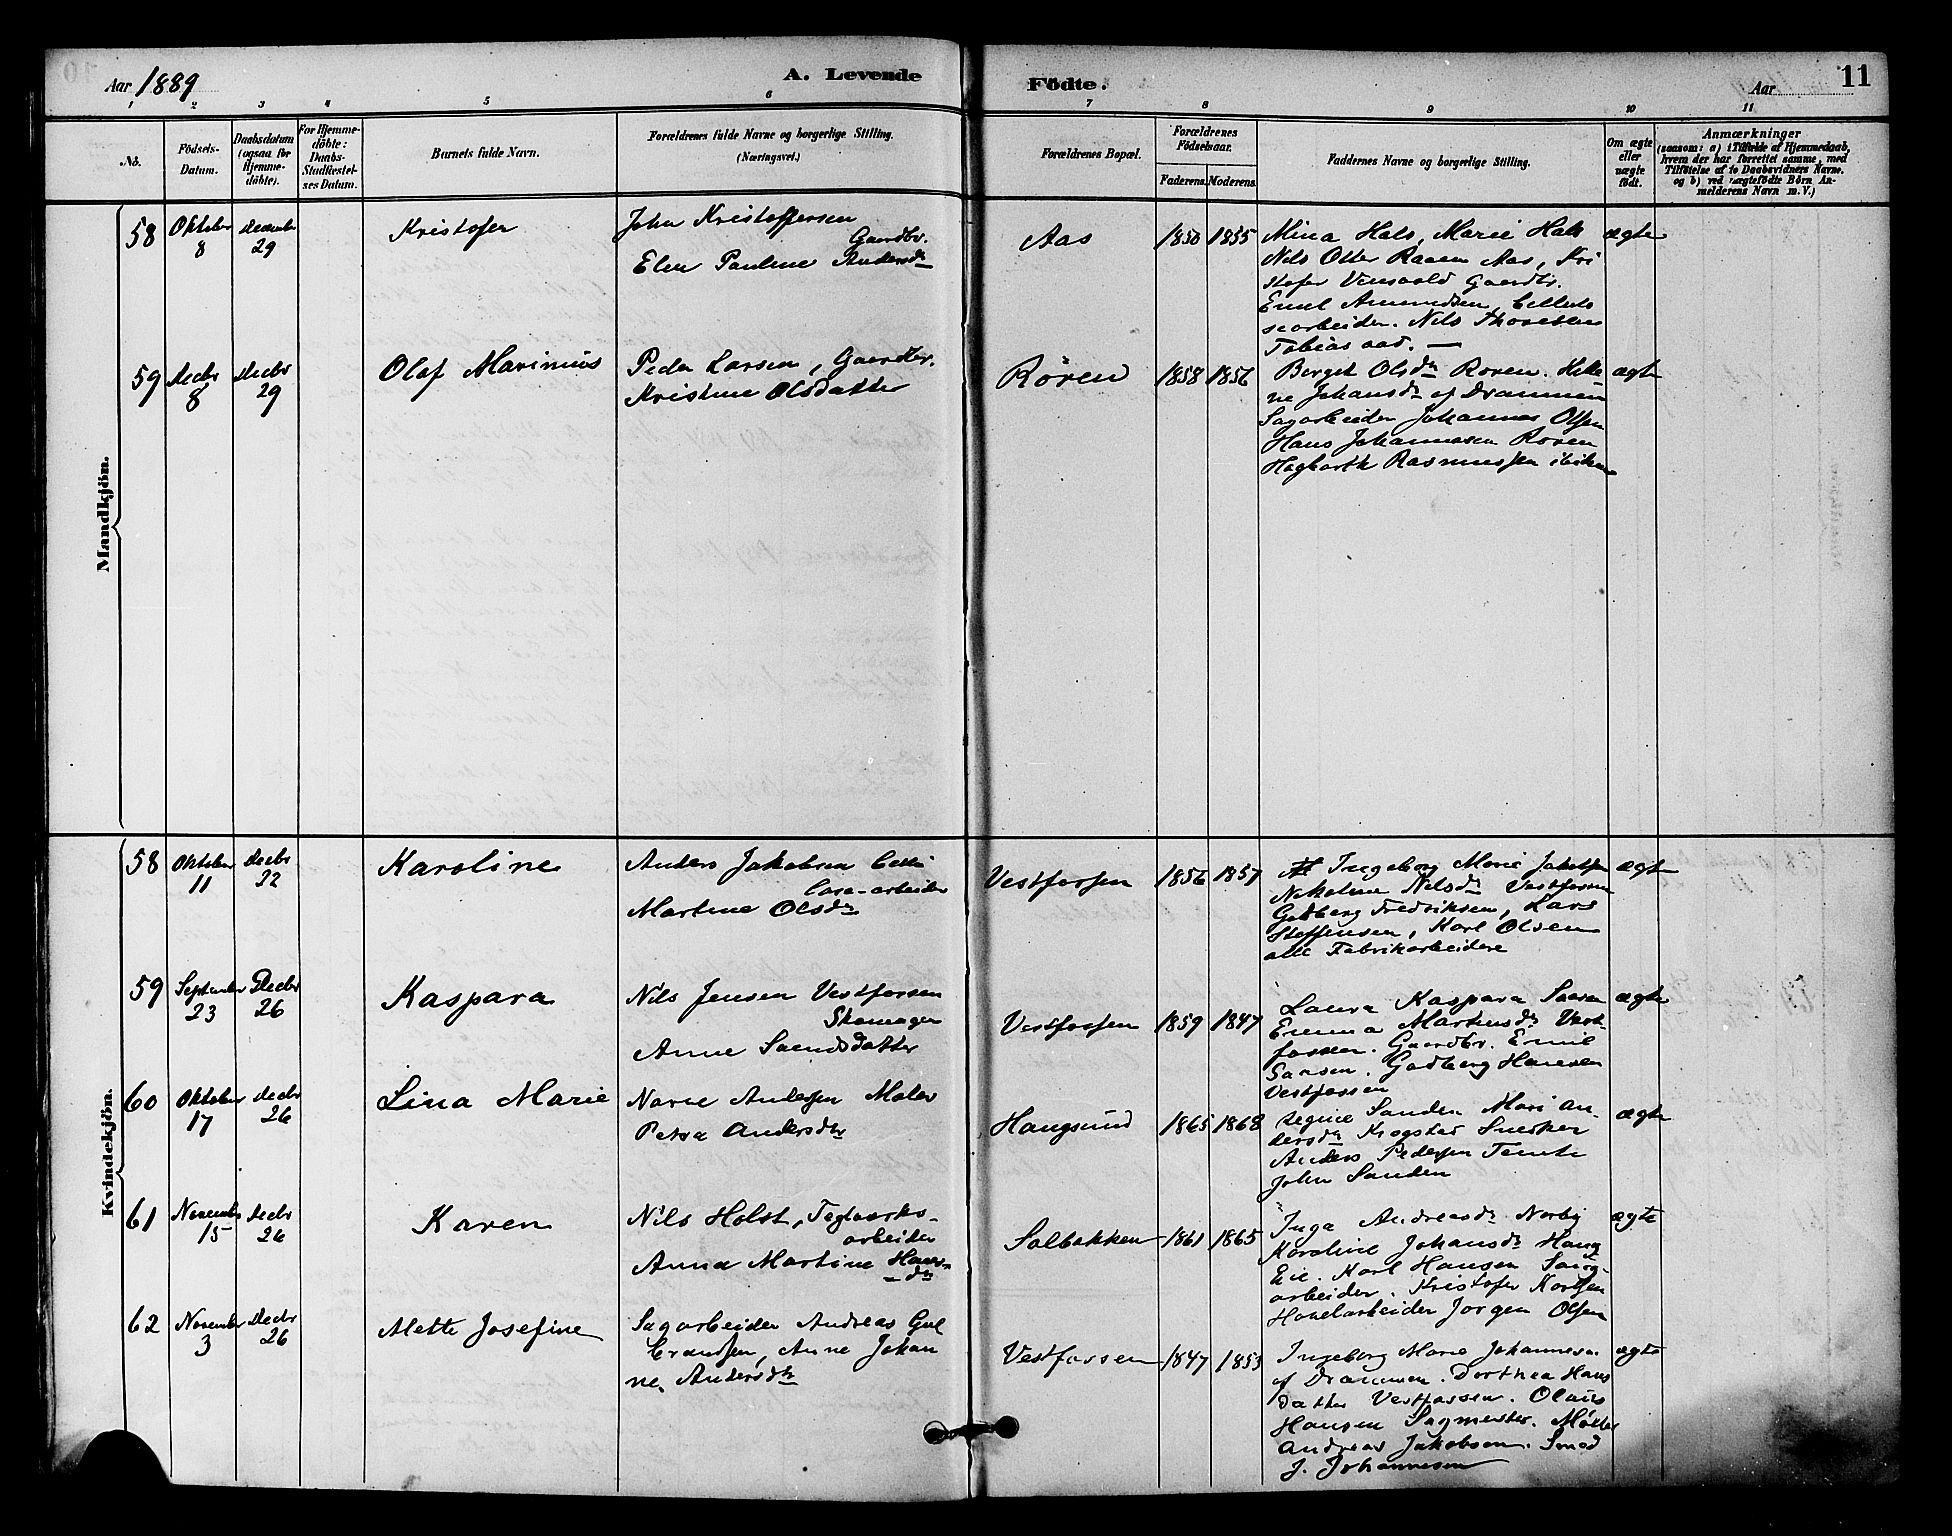 Aar 1889
A. Levende
Födte.
Aar
11
1 2 3 4 5 6 7 8 9 10 11
No.
Födsels-
Datum.
Daabsdatum
(ogsaa for
Hjemme-
döbte).
For Hjemme-
döbte:
Daabs-
Stadfæstel-
ses Datum.
Barnets fulde Navn.
Forældrenes fulde Navne og borgerlige Stilling.
(Næringsvei.)
Forældrenes Bopæl.
Forældrenes
Födselsaar.
Faderens. Moderens.
Faddernes Navne og borgerlige Stilling.
Om ægte
eller
uægte
födt.
Anmærkninger
(saasom: a) i Tilfælde af Hjemmedaab,
hvem der har forrettet samme, med
Tilföielse af to Daabsvidners Navne.
og b) ved uægtefödte Börn An-
melderens Navn m. V.)
Mandkjön.
58 Oktober 8 December 29 Kristofer
John Kristoffersen
Gaardbr.
Elen Pauline Andersdr
Aas 1850 1855
Mina Hals, Marie Hals
Nils Otter Raaen Aas, Kri
stofer Gaardbr.
Emil Amundsen, Cellulo
searbeider. Nils Thoresen
Tobias aas. —
ægte
59 Decbr 8 Decbr 29 Olaf Marinius
Peder Larsen, Gaardbr.
Kristine Olsdatter
Rören 1858 1856
Berget Olsdr Roren. Hele
ne Johansdr af Drammen
Sagarbeider Johannes Olsen
Hans Johannesen Roren
Hagbarth Rasmussen
ægte
Kvindekjön.
58 Oktober 11 Decbr 22 Karoline
Anders Jakobsen Cellu
lose-arbeider
Martine Olsdr
Vestfossen 1856 1857
Ingeborg Marie Jakobsen
Nikoline Nilsdr Vestfossen
Gudberg Fredriksen, Lars
Steffensen, Karl Olsen
alle Fabrikarbeidere
ægte
59 September 23 Decbr 26 Kaspara
Nils Jensen Vestfossen
Skomager
Anne Svendsdatter
Vestfossen 1859 1847
Laura Kaspara
Emma Martinsdr Vest-
fossen. Gaardbr. Emil
Gudberg Hansen
Vestfossen
ægte
60 Oktober 17 Decbr 26 Lina Marie
Narve Andersen Maler
Petra Andersdtr
Haugsund 1865 1868
Regine Sanden Mari An-
dersdr Krogstad Snedker
Anders Pedersen Temte
John Sanden
ægte
61 November 15 Decbr 26 Karen
Nils Holst, Teglværks-
arbeider
Anna Martine Hans-
dr
Solbakken 1861 1865
Inga Andreasdr Norby
Karoline Johansdr Haug
Eie. Karl Hansen Saug-
arbeider. Kristofer Karlsen
Høvelarbeider Jørgen Olsen
ægte
62 November 3 Decbr 26 Mette Josefine
Sagarbeider Andreas Gul
brandsen, Anne Johan
ne Andersdtr
Vestfossen 1847 1853
Ingeborg Marie Johannesen
af Drammen. Dorthea Hans
datter Vestfossen. Olaus
Hansen Sagmester. Møller
Andreas Jakobsen. Smed
J. Johannesen
ægte